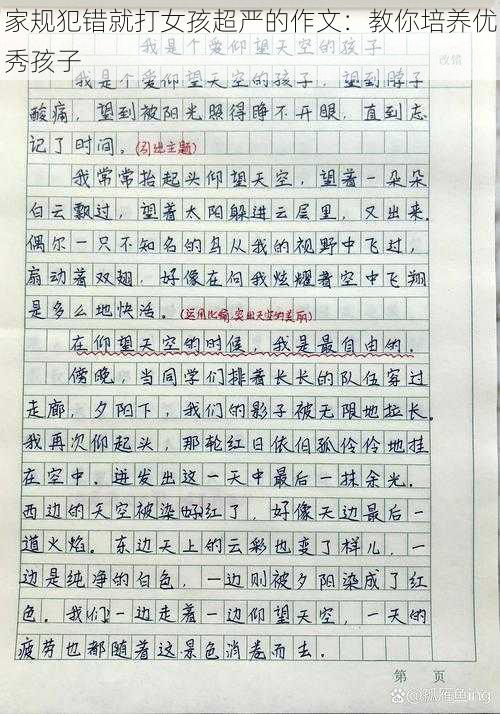 家规犯错就打女孩超严的作文：教你培养优
秀孩子
我是个爱仰望天空的孩子
改错
我是个爱仰望天空的孩子，望到脖子
酸痛，望到被阳光照得睁不开眼，直到忘
记了时间。(引进主题)
我常常抬起头仰望天空，望着一朵朵
白云飘过，望着太阳躲进云层里，又出来。
偶尔一只不知名的鸟从我的视野中飞过，
扇动着双翅，好像在向我炫耀着空中飞翔
是多么地快活。(运用比喻,突出天空的美丽)
在仰望天空的时候，我是最自由的。
傍晚，当同学们排着长长的队伍穿过
走廊，夕阳下，我们的影子被无限地拉长。
我再次仰起头，那轮红日依旧孤伶伶地挂
在空中。迸发出这一天中最后一抹余光。
西边的天空被染红了，好像天边最后一
道火焰。东边天上的云彩也变了样儿，一
边是纯净的白色，一边则被夕阳染成了红
色。我们一边走着一边仰望天空，一天的
疲劳也都随着这景色消卷而去。
第 页